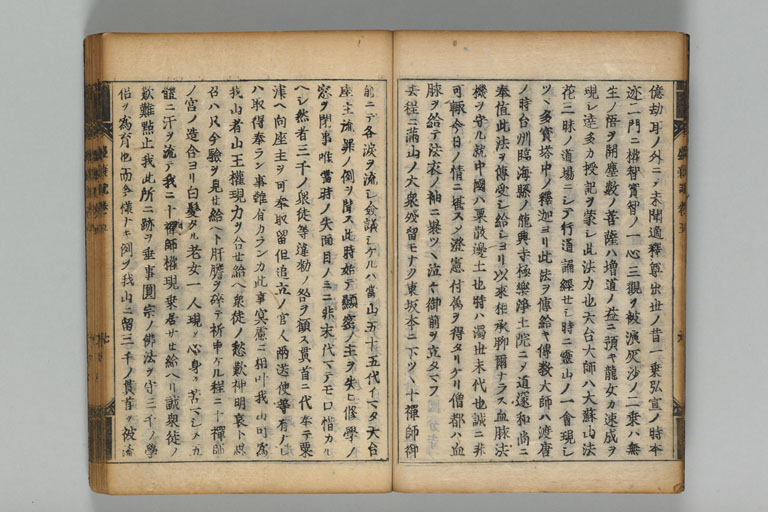 億劫耳ノ外ニソ未聞適釋尊出世ノ昔一乗弘宣ノ時本
迹二門ニ権智實智ノ一心三觀ヲ被演灰沙ノ二乗ハ無
生ノ悟ヲ開塵數ノ菩薩ハ増道ノ益ニ預キ龍女カ速成ヲ
現シ達多カ授記ヲ蒙シ此法力也天台大師ハ大蘇山法
花三昧ノ道場ニシテ行道誦經セシ時ニ霊山ノ一會現シ
ツヽ多寳塔中ノ釋迦ヨリ此法ヲ傳給キ傳教大師ハ渡唐
ノ時台州臨海縣ノ龍興寺極樂浄土院ニソ道邃和尚ニ
奉値此法ヲ傳受シ給シヨリ以来相承聊爾ナラス血脉法
機ヲ守ル就中國ハ粟散邊土也時ハ濁世末代也誠ニ非
可輙今日ノ情ニ堪スソ澄憲付屬ヲ得タリケリ僧都ハ血
脉ヲ給テ法衣ノ袖ニ裹ツヽ泣々御前ヲ立タマフ
去程ニ満山ノ大衆残留モナク東坂本ニ下ツヽ十禪師御
前ニテ各涙ヲ流シ僉議シケルハ當山五十五代イマタ天台
座主流罪ノ例ヲ聞ス此時始テ顯密ノ主ヲ失ヒ修學ノ
窓ヲ閉事唯當時ノ失面目ノミニ非末代マテモ口惜カル
ヘシ然者三千ノ衆徒等違勅ノ咎ヲ顧ス貫首ニ代奉テ粟
津ヘ向座主ヲ可奉取留但追立ノ官人兩送使等有ナレ
ハ取得奉ラン事難有カランカ此事冥慮ニ相叶我山可為
我山者山王權現力ヲ合せ給ヘ衆徒ノ愁歎神明哀ト思
召ハ只今驗ヲ見せ給ヘト肝膽ヲ碎テ祈申ケル程ニ十禪師
ノ宮ノ造合ヨリ白髪タル老女一人現シ心身ヲ苦マシメ
體ニ汗ヲ流テ我ニ十禪師權現乗居サせ給ヘリ誠衆徒ノ
歎難點止我此所ニ跡ヲ垂事圓宗ノ佛法ヲ守三千ノ學
侶ヲ為育也而今懐ナキ例ヲ我山ニ留三千ノ貫首ヲ被流